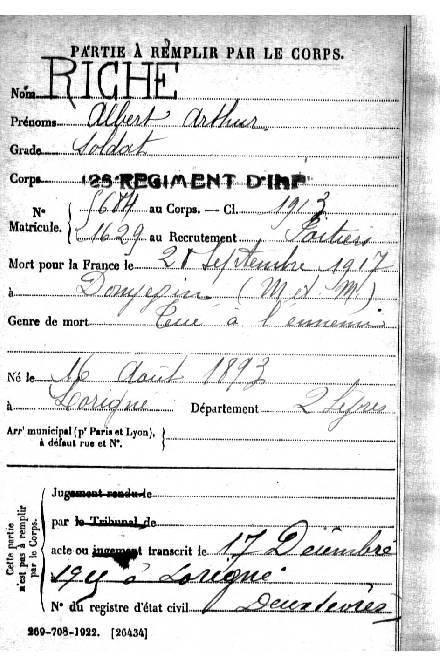 PARTIE À REMPLIR PAR LE CORPS.
Nom RICHE
Prénoms Albert Arthur
Grade Soldat
Corps 125 REGIMENT D'INF
N° Matricule. { au Corps. — Cl. 1913
1629 au Recrutement Poitiers
Mort pour la France le Septembre 1917
à (M et M)
Genre de mort Tué à l'ennemi
Né le 16 Août 1893
à Lorigné Département 2 Sèvres
Arr^t municipal (p^r Paris et Lyon), à défaut rue et N°.
Cette partie n'est pas à remplir par le Corps.
Jugement rendu le
par le Tribunal de
acte ou jugement transcrit le 17 Décembre
à Lorigné
N° du registre d'état civil Deux Sèvres
269-708-1922. [26434]